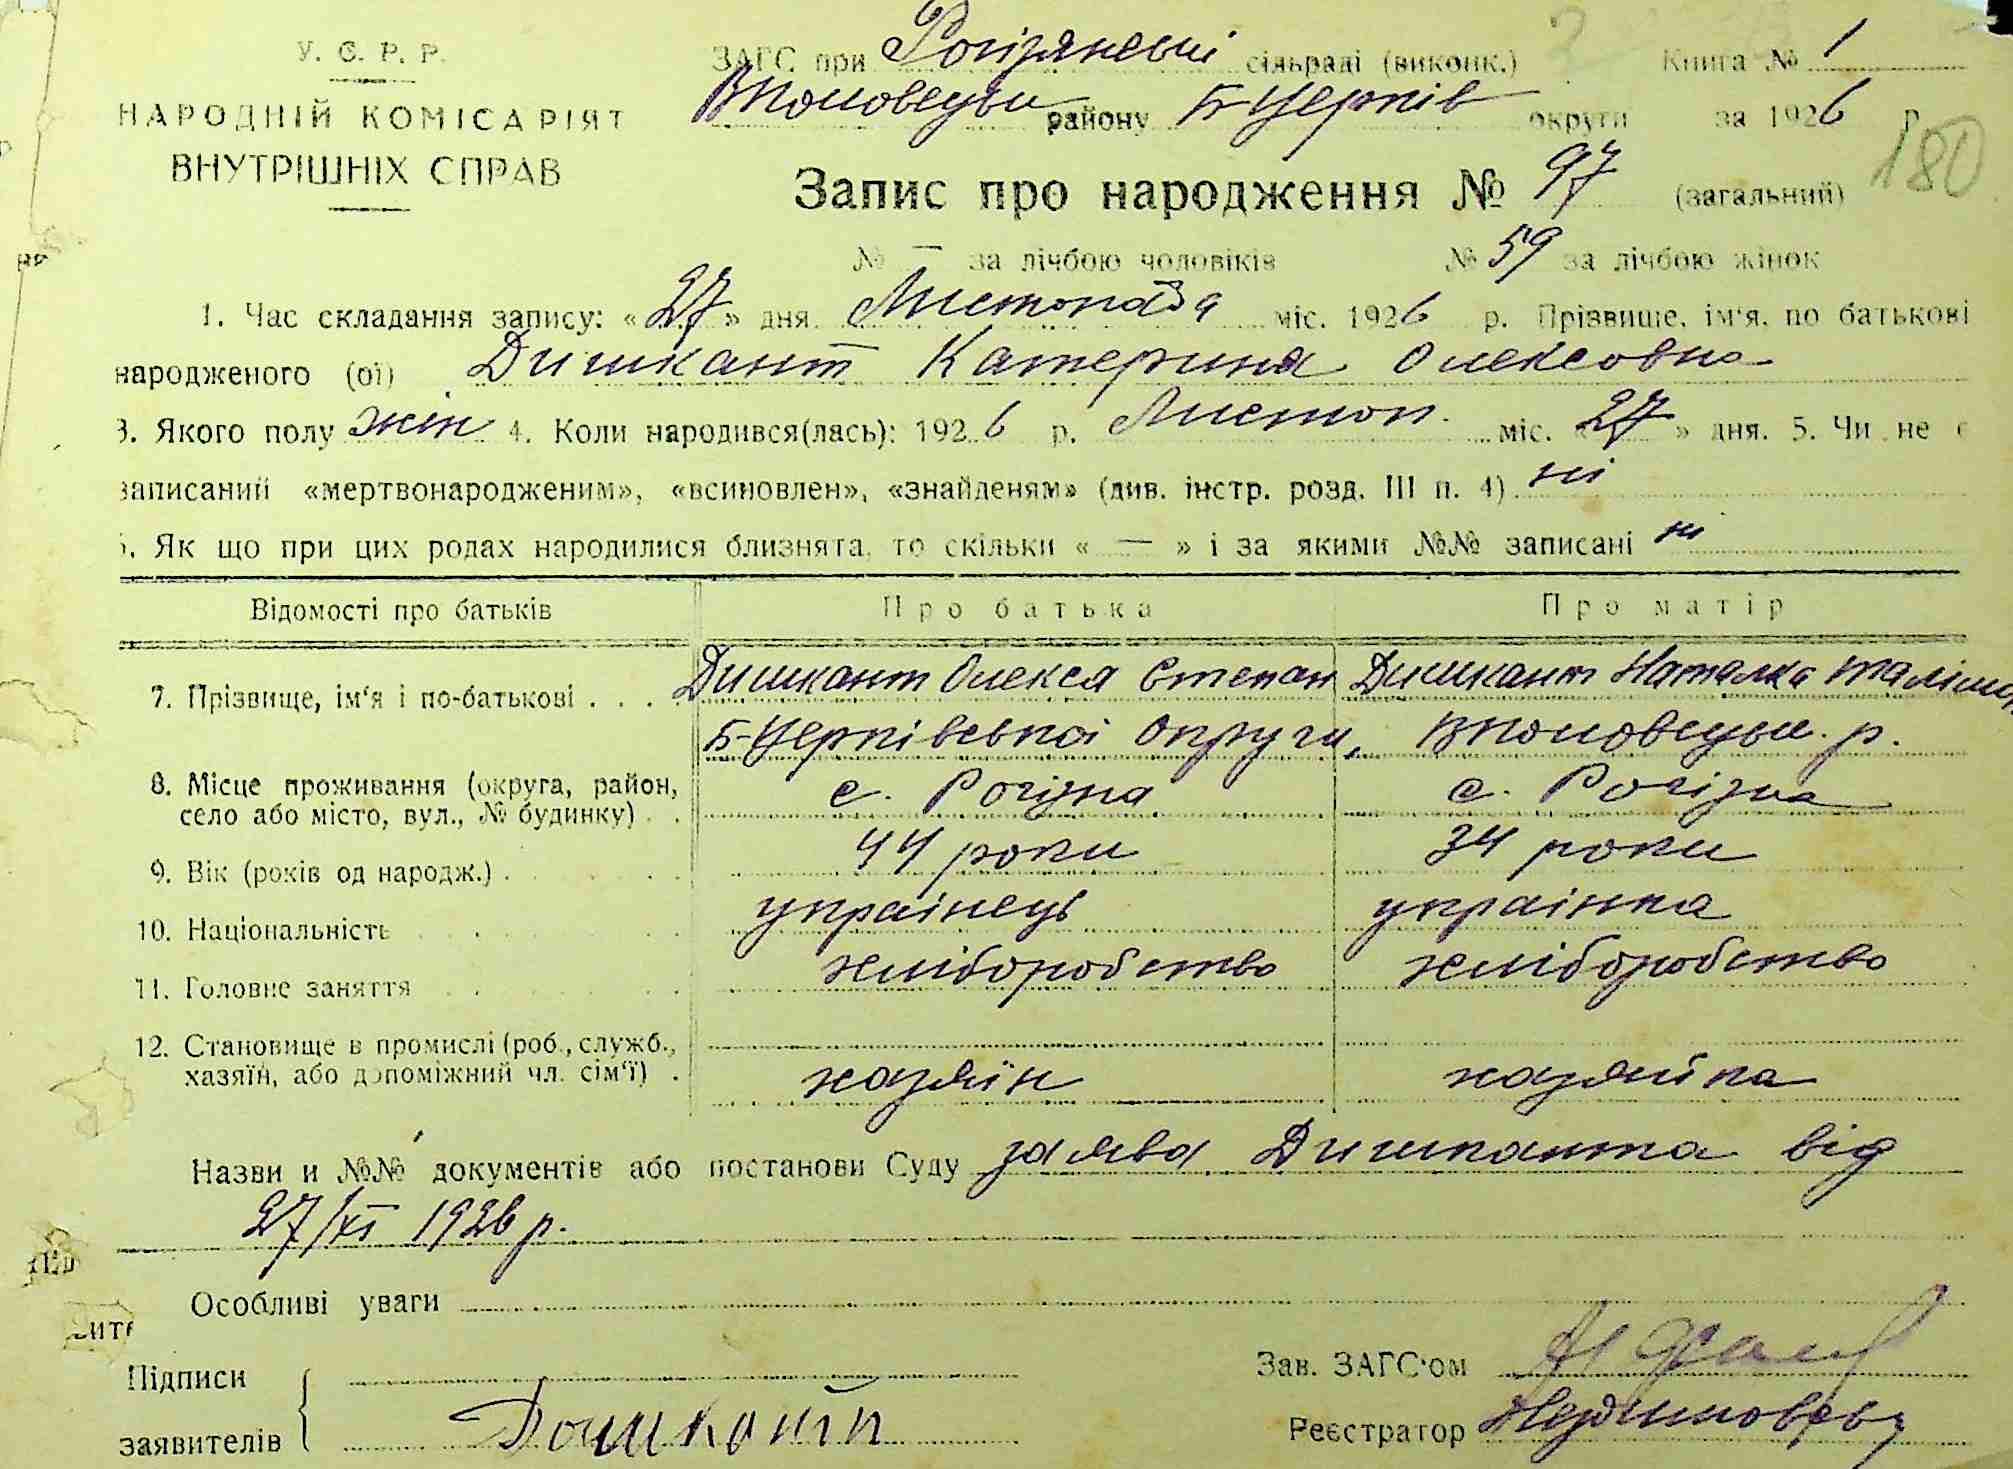 У. С. Р. Р.
НАРОДНІЙ КОМІСАРІЯТ
ВНУТРІШНІХ СПРАВ
ЗАГС при Рогізянські сільраді (виконк.) Книга № 1
району Б-Церків округи за 1926 р
180
Запис про народження № 97 (загальний)
№ — за лічбою чоловіків № 59 за лічбою жінок
1. Час складання запису: «27» дня Листопада міс. 1926 р. Прізвище, ім'я, по батькові
народженого (ої) Дишкант Катерина Олексовна
3. Якого полу жін 4. Коли народився(лась): 1926 р. Листоп. міс. «27» дня. 5. Чи не є
записаний «мертвонародженим», «всиновлен», «знайденям» (див. інстр. розд. III п. 4) ні
. Як що при цих родах народилися близнята, то скільки « — » і за якими №№ записані ні
Відомості про батьків Про батька Про матір
7. Прізвище, ім'я і по-батькові . . . . Дишкант Олекса Степан Дишкант Наталка
Б-Церківської округи, р.
8. Місце проживання (округа, район, село або місто, вул., № будинку) . . с. Рогізна с. Рогізна
9. Вік (років од народж.) . 44 роки 34 роки
10. Національність українець українка
11. Головне заняття хліборобство хліборобство
12. Становище в промислі (роб., служб., хазяїн, або допоміжний чл. сім'ї) . хазяїн хазяйка
Назви и №№ документів або постанови Суду заява Дишканта від
27/XI 1926 р.
Особливі уваги
Підписи
заявителів Дошкант
Зав. ЗАГС'ом
Реєстратор